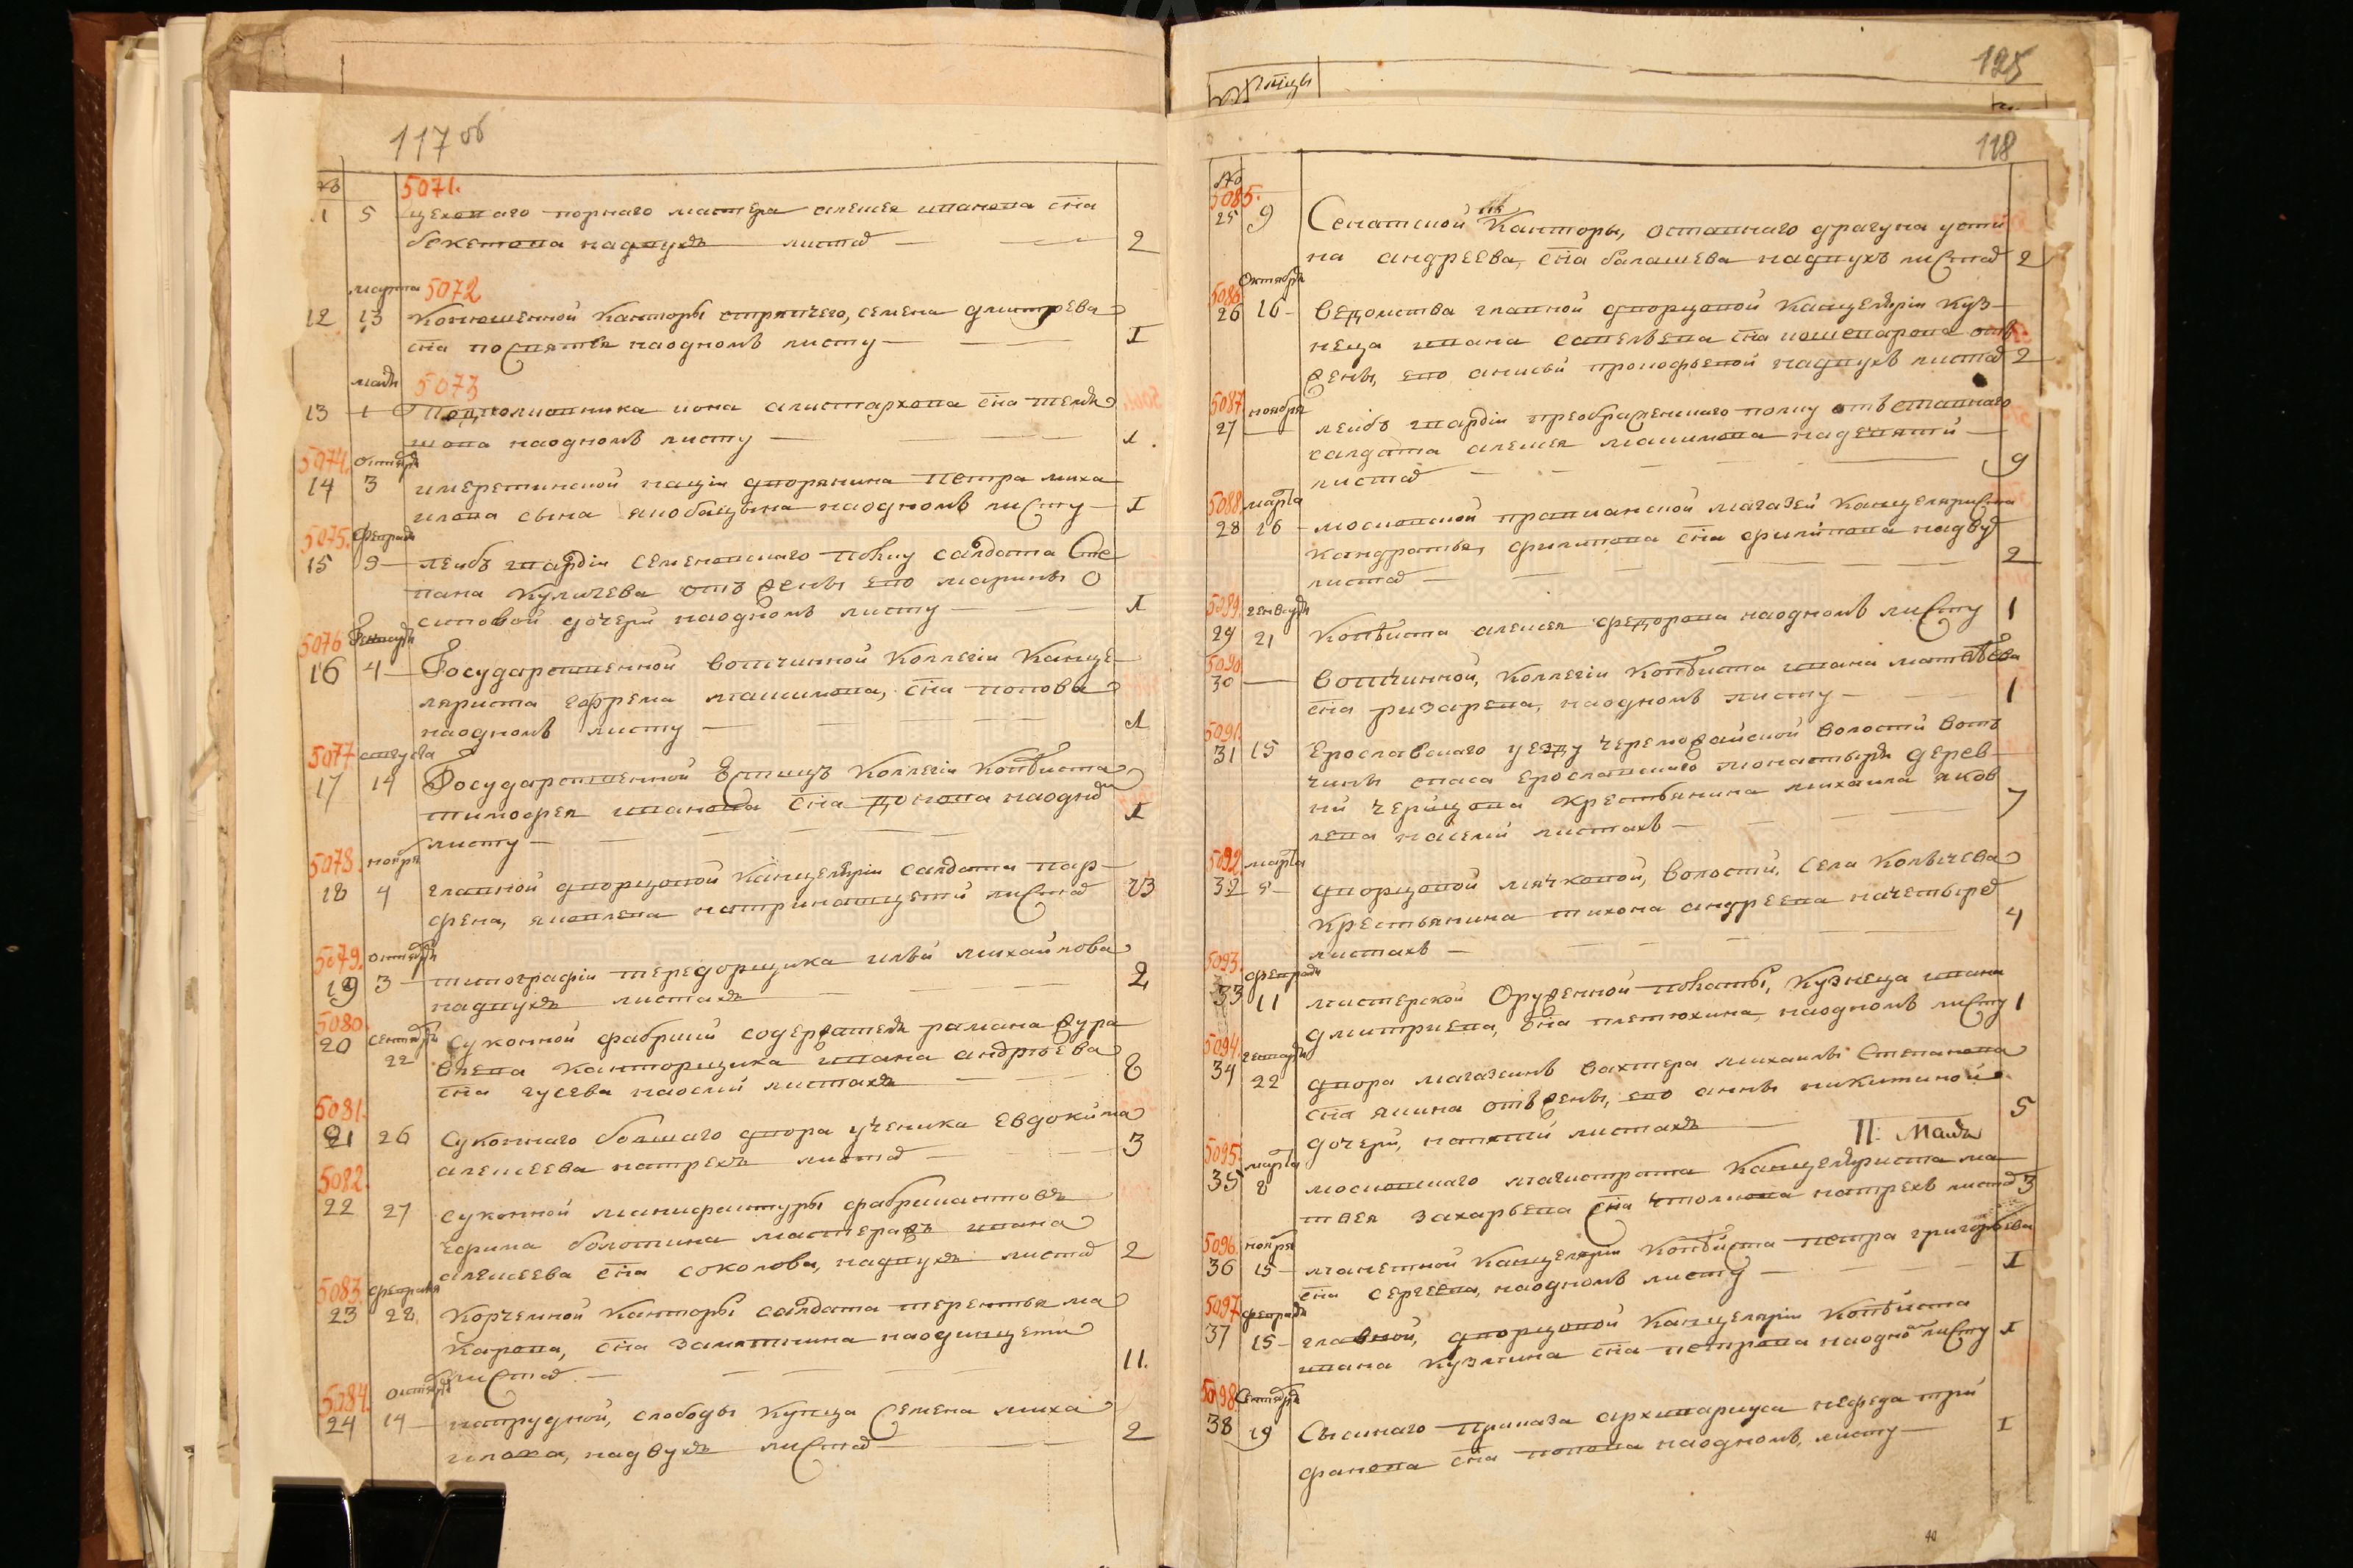 117 об
№
5071.
11 5 цеховаго порнаго мастера алексея иванова сна
бекетова надвухъ листа 2
марта 5072
12 13 Конюшенной Канторы стряпчего, семена дмитрева
сна наодномъ листу 1
маия 5073
13 1 Подполковника иона алистархова сна
шова наодномъ листу 1.
5074. октября
14 3 имеретинской нации дворянина Петра миха
илова сына наодномъ листу 1
5075. февраля
15 9 лейбъ гвардіи семеновскаго полку салдата Сте
пана Куличева отъ жены ево марины О
сиповой дочери наодномъ листу 1
5076 Генваря
16 4 Государственной вотчинной КоллегіиКанце
ляриста ефрема максимова, сна попова
наодномъ листу 1
5077 августа
17 14 Государственной Юстицъ Коллегіи Копѣиста
тимофея иванова сна наодно
листу 1
5078. ноября
18 4 главной дворцовой Канцеляріи салдата пар
фена, яковлева натринатцети листа 13
5079. октября
19 3 типографіи тередорщика ильи михаилова
надвухъ листахъ 2
5080. сентября
20 22 суконной фабрики содержателя рамана жура
влева Канторщика ивана андрѣева
сна гусева наосми листахъ 8
5081.
21 26 Суконнаго болшаго двора ученика Евдокима
алексеева натрехъ листа 3
5082.
22 27 суконной манифактуры фабрикантовъ
ефима болотина мастера ивана
алексеева сна соколова, надвухъ листа 2
5083. февраля
23 28. Корчемной Канторы салдата терентья ма
карова, сна замятнина наодинцети
листа 11.
5084. октября
24 14 напрудной, слободы Купца Семена миха
илова, надвухъ листа 2
125
118
№
5085.
25 9 Сенатской Канторы, отставнаго драгуна усти
на андреева, сна балашева надвухъ листа 2
5086. Октября
26 16 ведомства главной дворцовой Канцеляріи Куз
неца ивана савельева сна отъ
жены, ево анисьи прокофьевой надвухъ листа 2
5087. ноября
27 лейбъ гвардіи преображенскаго полку отъставнаго
салдата алексея максимова надевяти
листа 9
5088 марта
28 26 московской правианской магазеи Канцеляриста
Кандратья, филипова сна филипова надву
листа 2
5089. генваря
29 21 Копѣиста алексея федорова наодномъ листу 1
5090.
30 вотчинной, Коллегіи Копѣиста ивана матвѣева
сна ризарева, наодномъ листу 1
5091.
31 15 Ерославскаго уезду череможайской волости вот
чины спаса ерославскаго монастыря дерев
ни крестьянина михаила яков
лева насеми листахъ 7
5092. марта
32 5 дворцовой мячковой, волости, села Колычева
Крестьянина тихона андреева начетыре
листахъ 4
5093. февраля
33 11 мастерской Оружейной полаты, Кузнеца ивана
дмитриева, сна плетюхина, наодномъ листу 1
5094. генваря
34 22 двора магазинъ вахтера михаилы Степанова
сна якина отъ жены, ево анны никитиной
дочери, напяти листахъ 5
П: Маия
5095. марта
35 8 московскаго магистрата Канцеляриста ма
твея захарьева сна натрехъ листа 3
5096. ноября
36 15 манетной Канцеляріи Копѣиста петра григорьева
сна сергеева, наодномъ листу 1
5097. февраля
37 15 главной, дворцовой Канцелярии Копѣиста
ивана Кузмина сна петрова наодно листу 1
5098 Сентября
38 19 Сыскнаго приказа архивариуса нефеда три
фанова сна попова наодномъ, листу 1
40